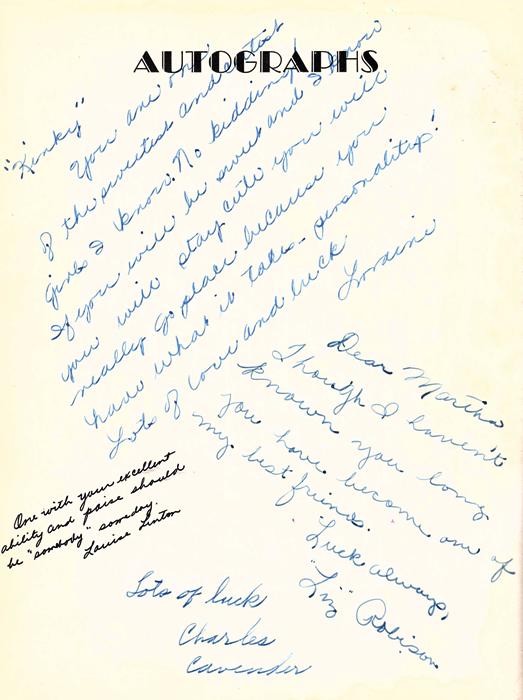 AUTOGRAPHS
"Kinky"
You are one
of the sweetest and cutest
girls I know. No kidding!
If you will be sweet and I know
you will stay cute you will
really go places because you
have what it takes - personality!
Lots of love and luck
Loraine
Dear Martha
Though I haven't
known you long
you have become one of
my best friends.
Luck always,
"Liz" Robison
One with your excellent
ability and poise should
be "somebody" someday.
Louise Linton
Lots of luck
Charles
Cavender